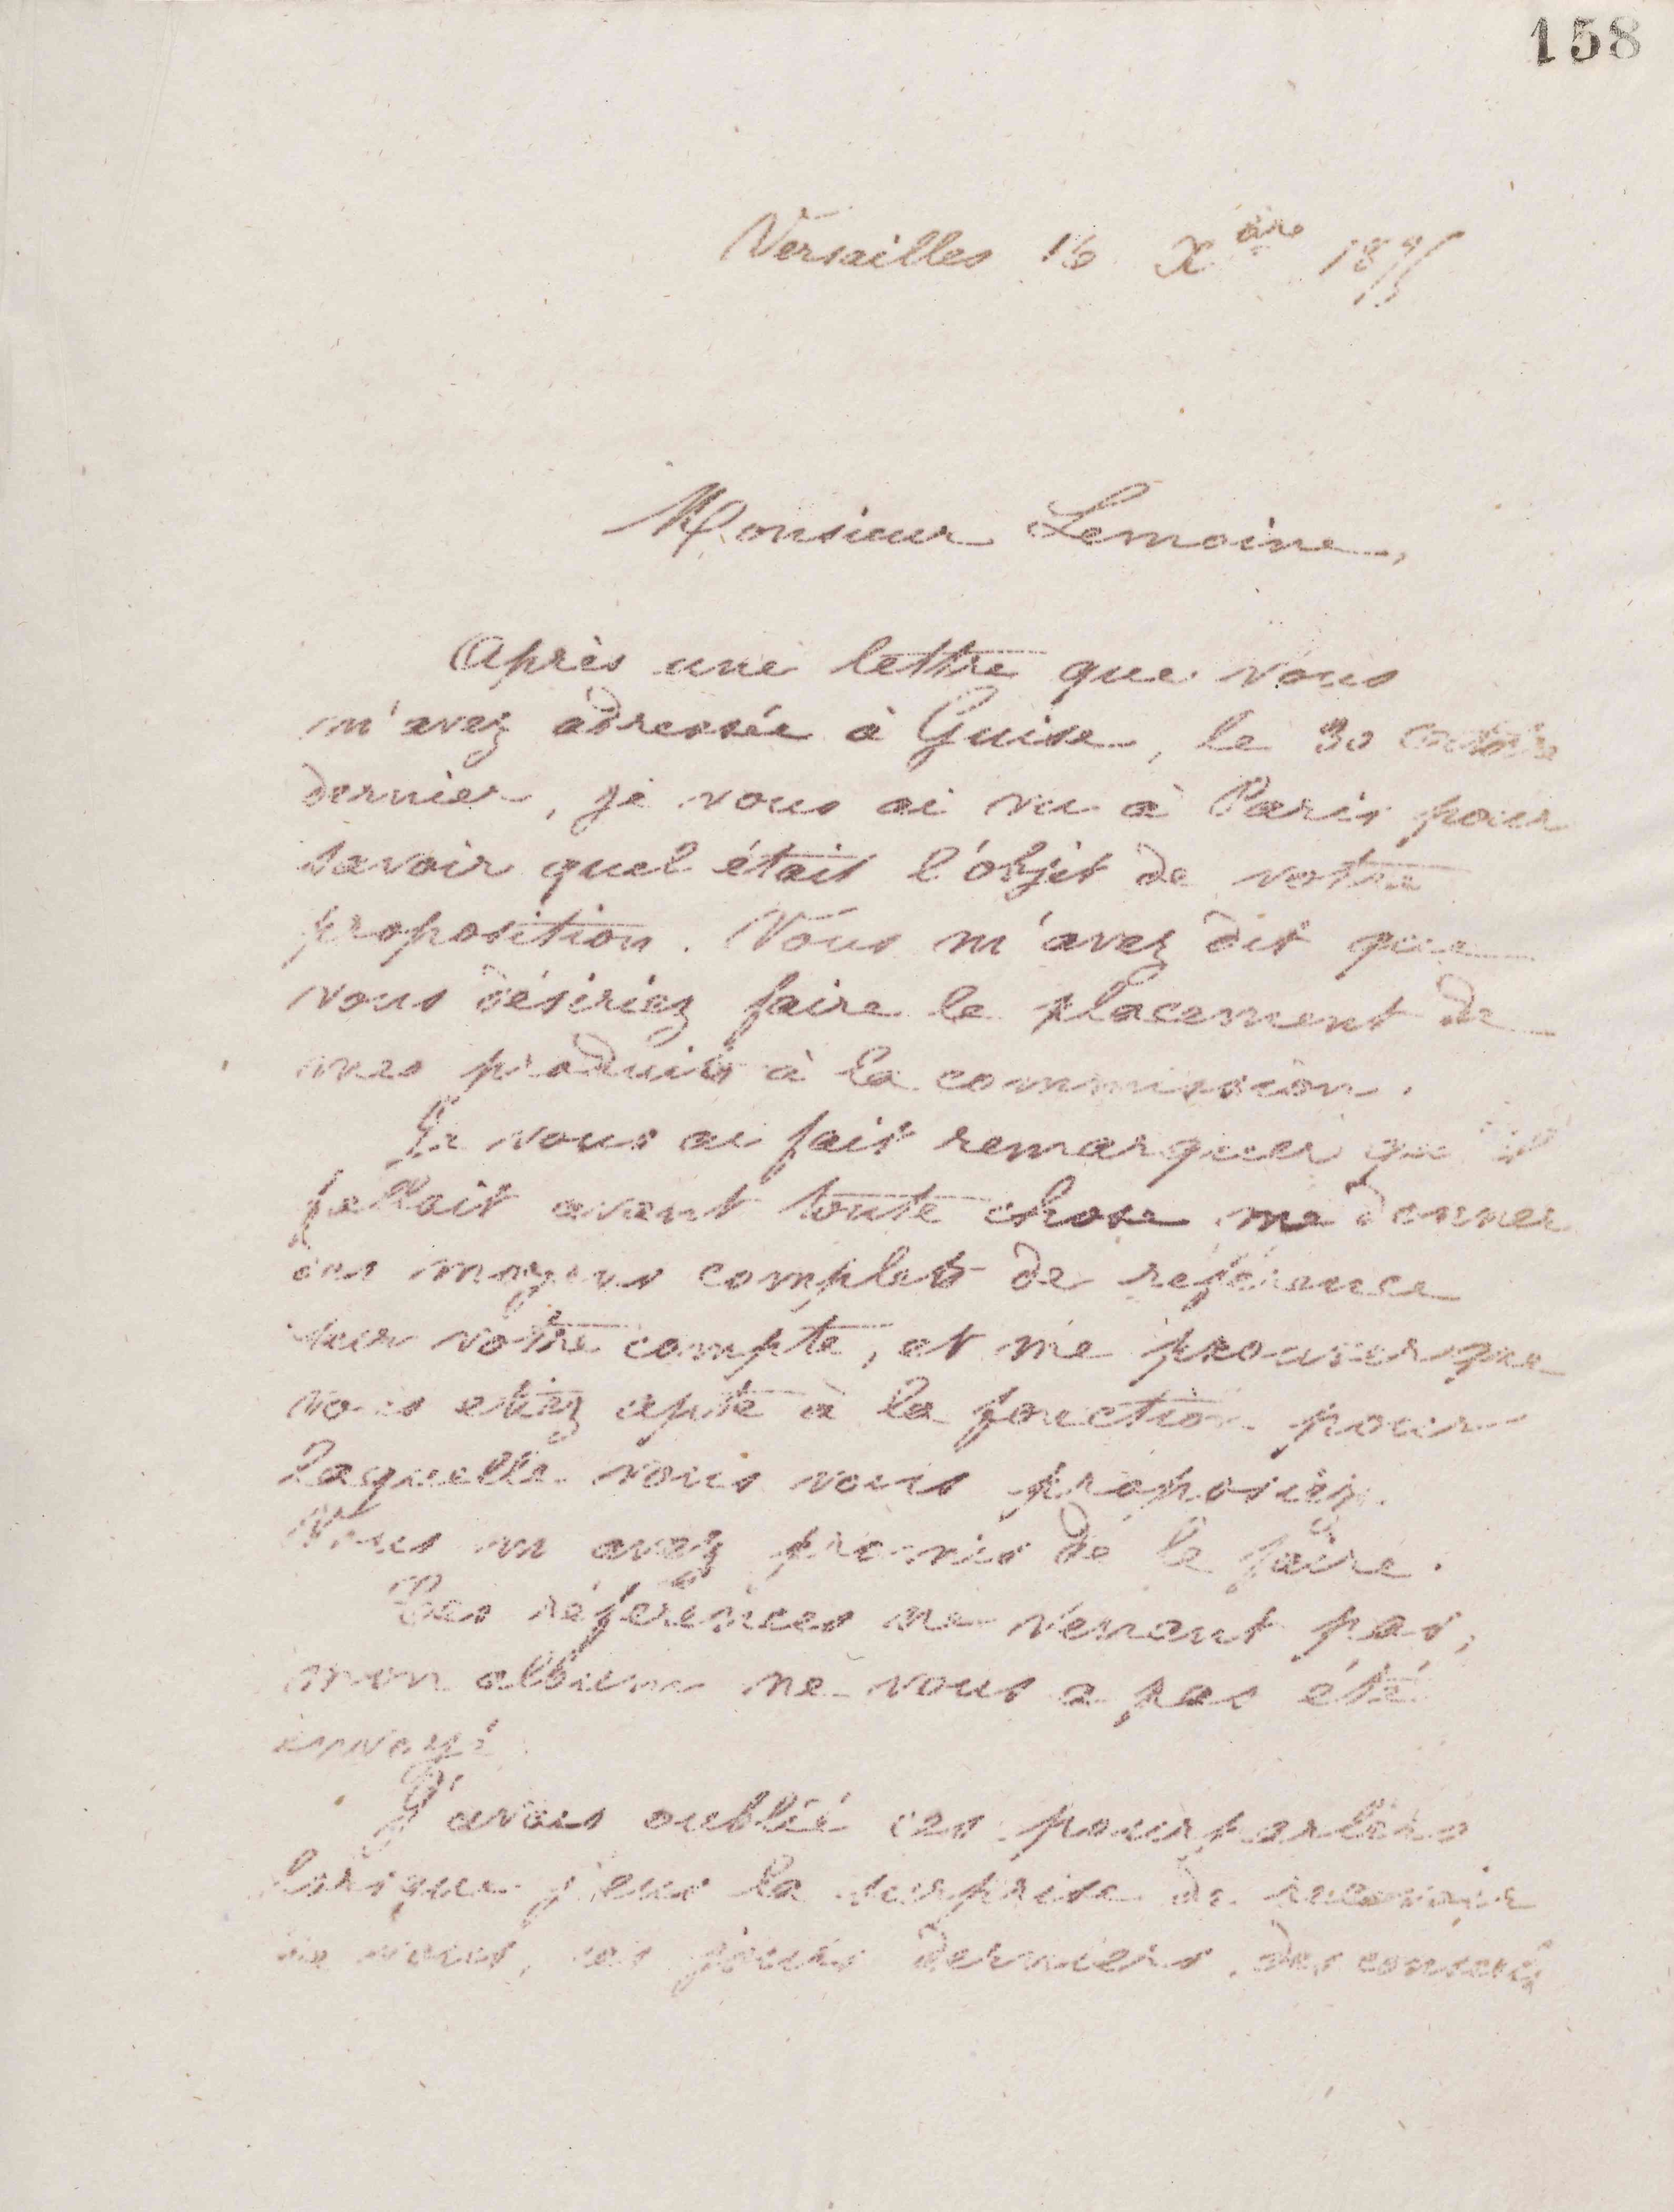 158
Versailles 16 Xbre 1875
Monsieur Lemoine,
Après une lettre que vous
m'avez adressée à Guise, le 30 octobre
dernier, je vous ai vu à Paris pour
savoir quel était l'objet de votre
proposition. Vous m'avez dit que
vous désiriez faire le placement de
mes produits à la commission.
Je vous ai fait remarquer qu'il
fallait avant toute chose me donner
des moyens complets de référence
sur votre compte, et me prouver que
vous etiez apte à la fonction pour
laquelle vous vous proposiez.
Vous m'avez promis de le faire.
Ces références ne venant pas,
mon album ne vous a pas été
envoyé.
J'avais oublié ces pourparlers
lorsque j'eus la surprise de recevoir
de vous, ces jours derniers, des conseils